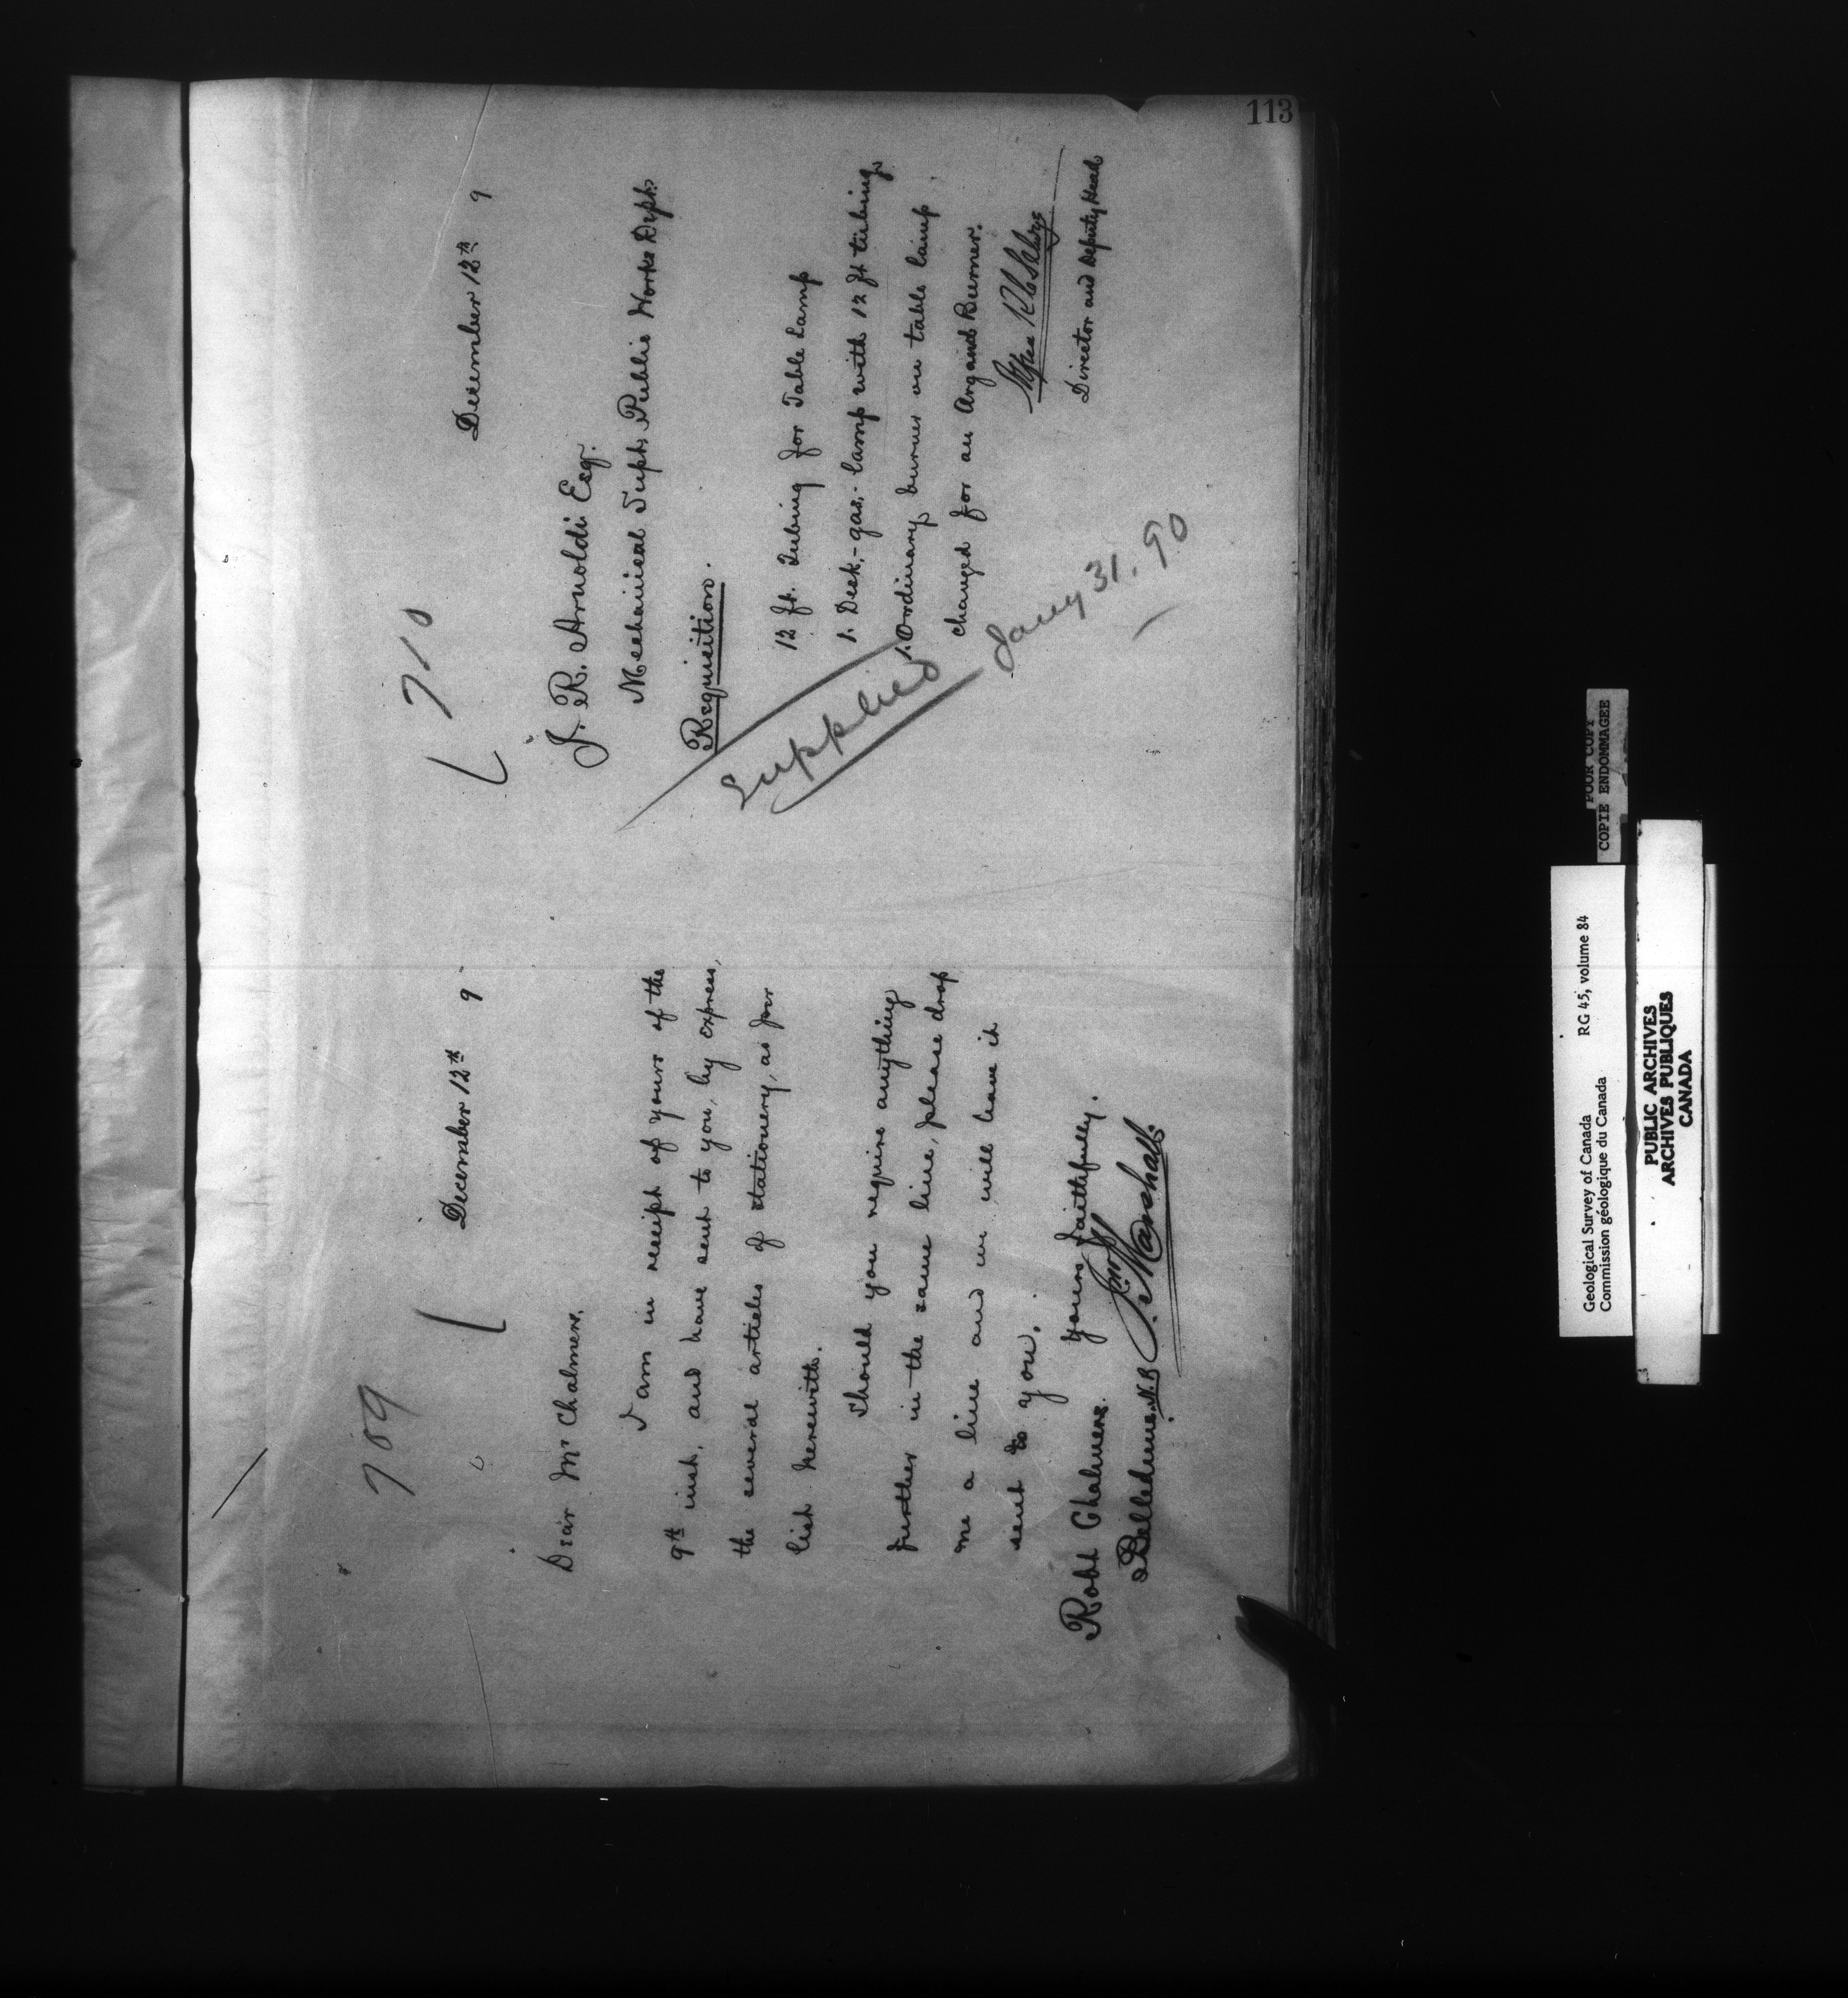 113
709
December 12th 9
Dear Mr Chalmers,
I am in receipt of yours of the
9th inst, and have sent to you, by express,
the several articles of stationery, as per
list herewith.
Should you require anything
further in the same line, please drop
me a line and we will have it
sent to you.
Yours faithfully.
Jno Marshall.
Robt Chalmers.
Belledune. N.B.
710
December 12th 9
J. R. Arnoldi Esq.
Mechanical Supt. Public Works Dept.
Requisition.
12 ft. Tubing for Table Lamp
1. Desk,-gas,-lamp with 12 ft tubing
1. Ordinary burner on table lamp
changed for an Argand Burner.
Director and Deputy Head
Supplied Jany 31. 90
POOR COPY
COPIE ENDOMMAGEE
Geological Survey of Canada RG 45, volume 84
Commission géologique du Canada
PUBLIC ARCHIVES
ARCHIVES PUBLIQUES
CANADA